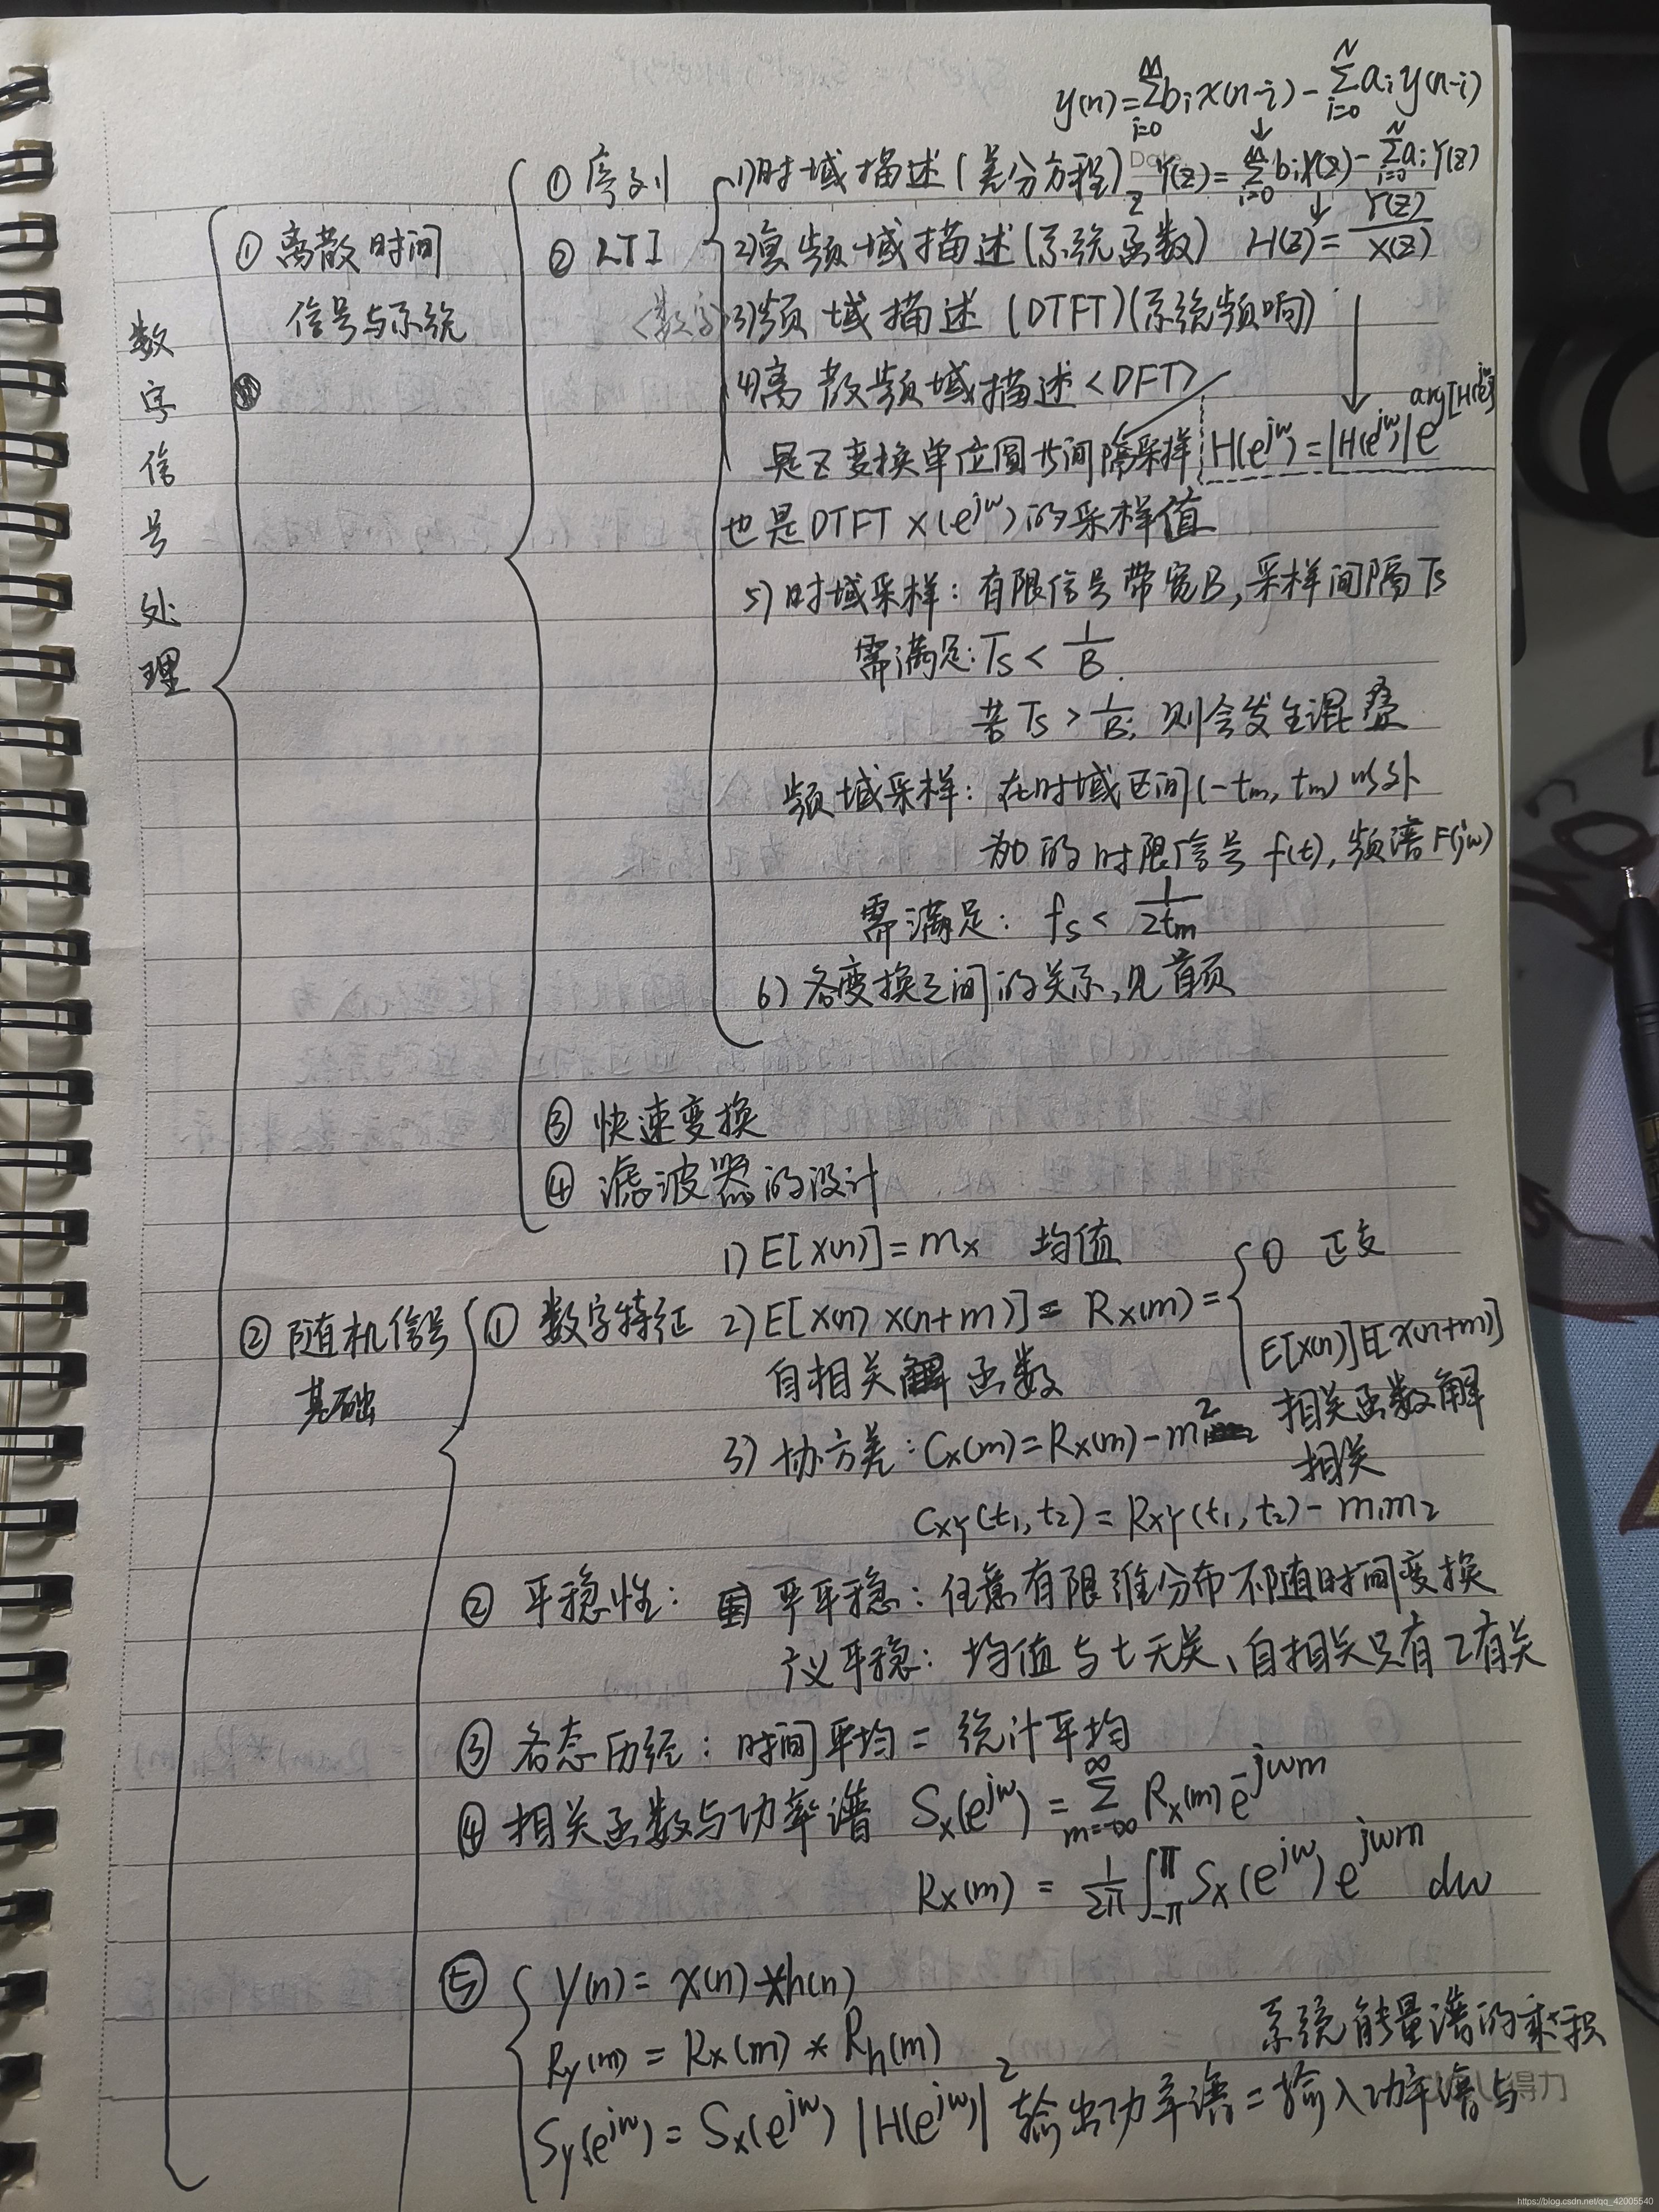 y(n)=∑_{i=0}^{M} b_i x(n-i) - ∑_{i=0}^{N} a_i y(n-i)
↓
数字信号处理
① 离散时间
信号与系统
① 序列
② LTI
<数字>
1)时域描述(差分方程) Y(z)=∑_{i=0}^{M} b_i X(z) - ∑_{i=0}^{N} a_i Y(z)
2)复频域描述(系统函数) H(z)=Y(z)/X(z)
3)频域描述 (DTFT)(系统频响)
4)离散频域描述<DFT>
是Z变换单位圆 间隔采样 H(e^{jw})=|H(e^{jw})|e^{j arg[H(e^{jw})]}
也是DTFT X(e^{jw})的采样值
5) 时域采样: 有限信号带宽B,采样间隔Ts
需满足: Ts < 1/B
若 Ts > 1/B, 则会发生混叠
频域采样: 在时域区间(-tm, tm)以外
为0的时限信号 f(t), 频谱F(jw)
需满足: fs < 1/2tm
6) 各变换之间的关系,见首页
③ 快速变换
④ 滤波器的设计
② 随机信号
基础
① 数字特征
1) E[X(n)]=mx 均值
2) E[X(n) X(n+m)] = Rx(m) = { 0 正交
E[X(n)]E[X(n+m)]
自相关 函数
相关函数解
相关
3) 协方差: Cx(m)=Rx(m)-m²
CXY(t1, t2)=RXY(t1, t2)-m1m2
② 平稳性: 严平稳: 任意有限维分布不随时间变换
广义平稳: 均值与t无关、自相关只有τ有关
③ 各态历经: 时间平均 = 统计平均
④ 相关函数与功率谱 Sx(e^{jw}) = ∑_{m=-∞}^{∞} Rx(m)e^{-jwm}
Rx(m) = 1/2π ∫_{-π}^{π} Sx(e^{jw}) e^{jwm} dw
⑤ Y(n)= X(n)*h(n)
Ry(m) = Rx(m) * Rh(m)
系统能量谱的乘积
Sy(e^{jw})= Sx(e^{jw}) |H(e^{jw})|² 输出功率谱=输入功率谱与
得力
https://blog.csdn.net/qq_42005540